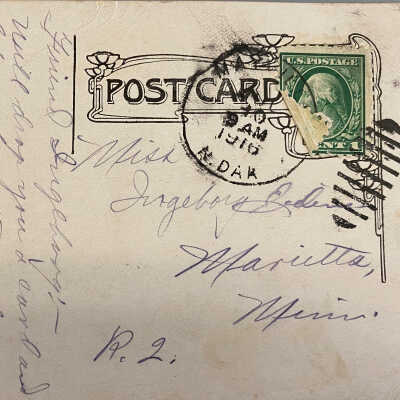 POST CARD
U.S. POSTAGE
MAR
10
9 AM
1916
N. DAK
CENT 1
Miss
Ingeborg
Marietta,
Minn.
R. 2.
Friend Ingeborg:—
Will drop you a card and